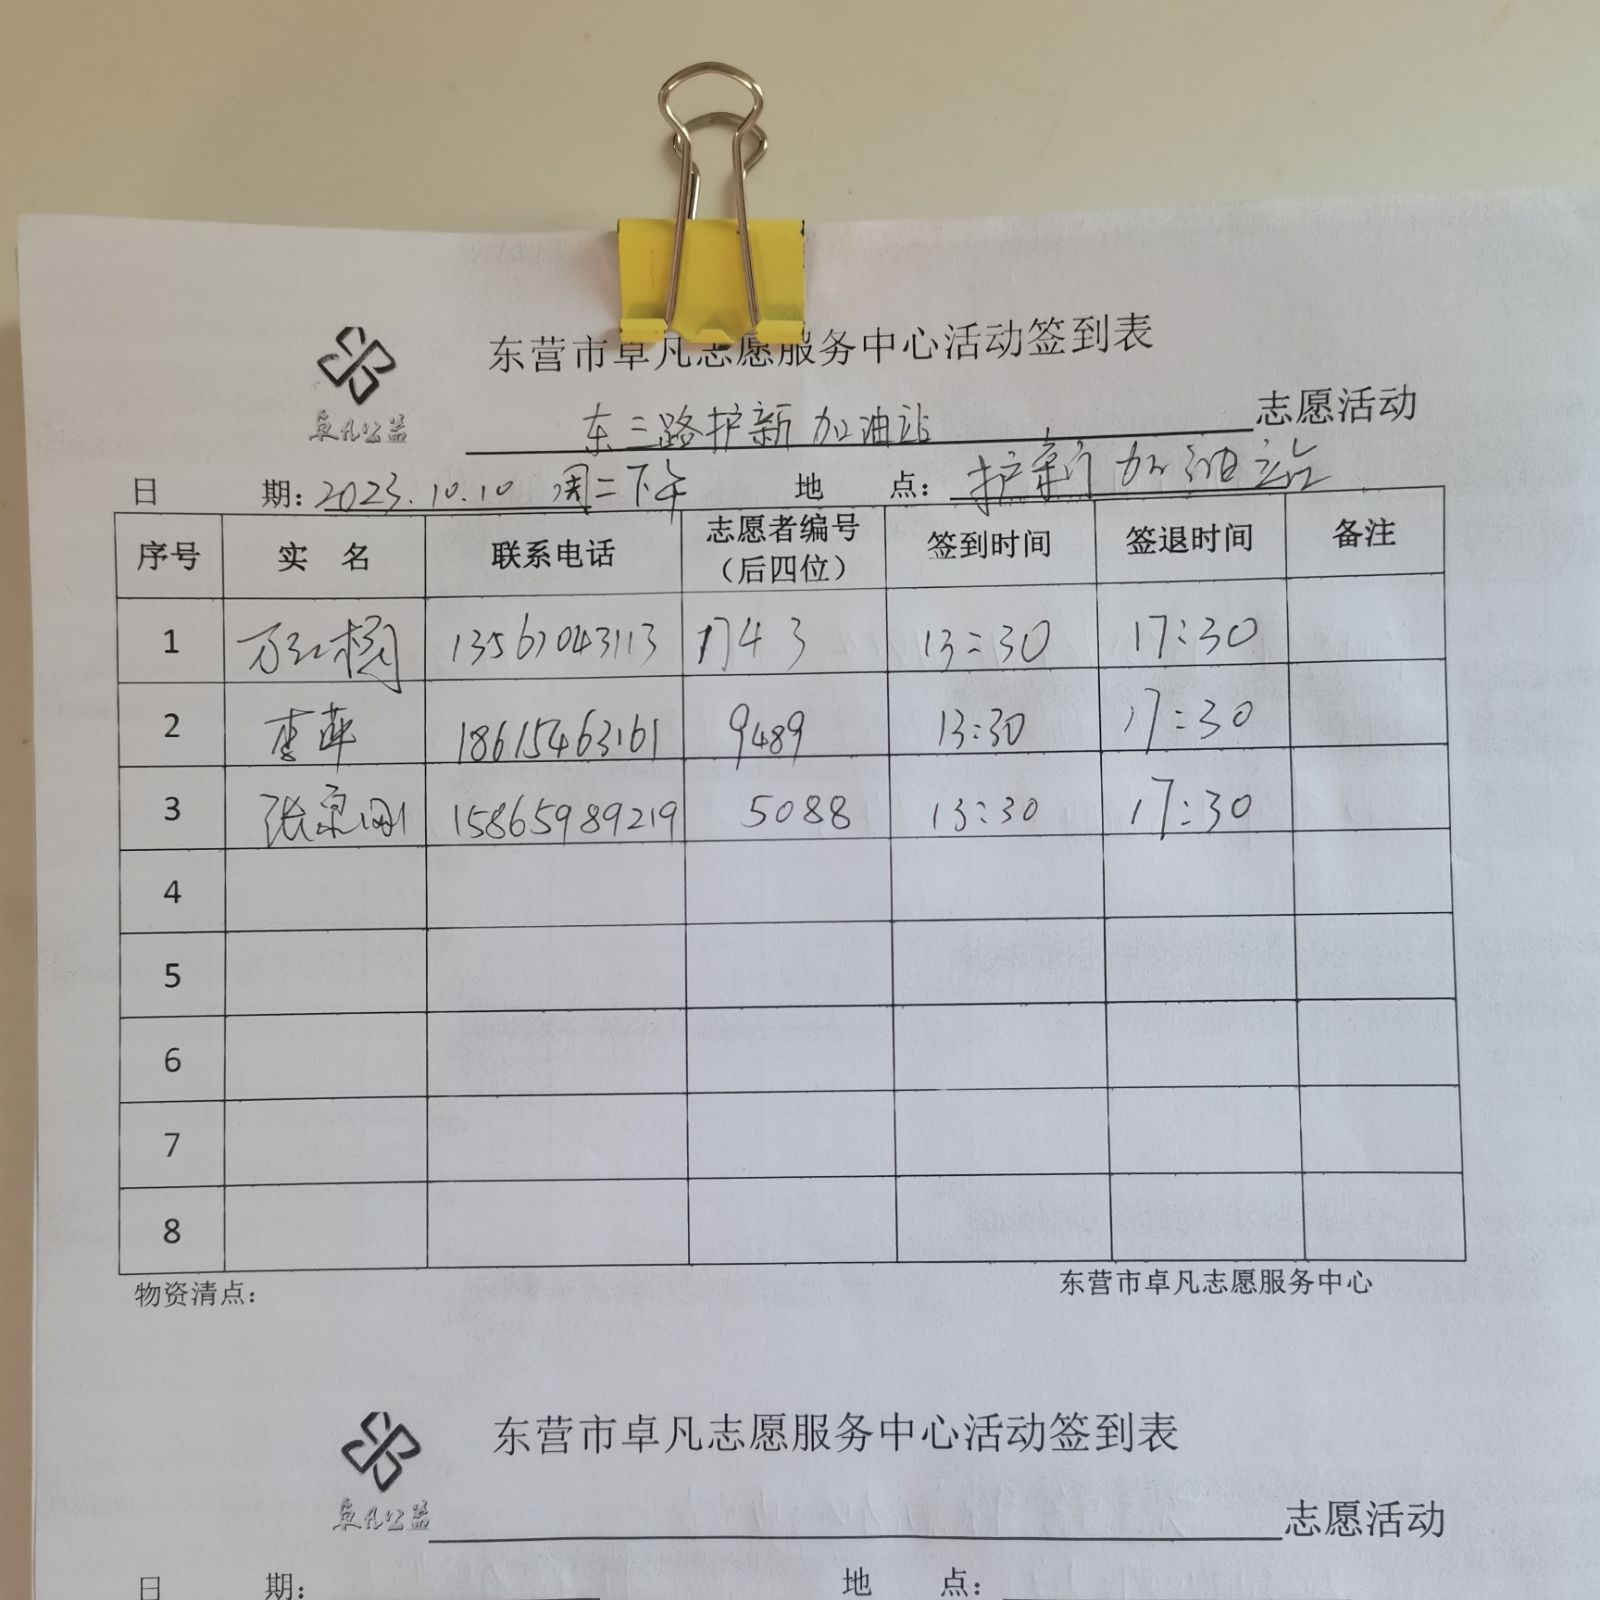 东营市卓凡志愿服务中心活动签到表
卓凡公益
东三路护新加油站 志愿活动
日 期: 2023.10.10 周二下午 地 点: 护新加油站
序号 实 名 联系电话 志愿者编号（后四位） 签到时间 签退时间 备注
1 万红 13561043113 1743 13:30 17:30
2 李萍 18615463161 9489 13:30 17:30
3 张京刚 15865989219 5088 13:30 17:30
4
5
6
7
8
物资清点: 东营市卓凡志愿服务中心
东营市卓凡志愿服务中心活动签到表
卓凡公益
志愿活动
日 期: 地 点: